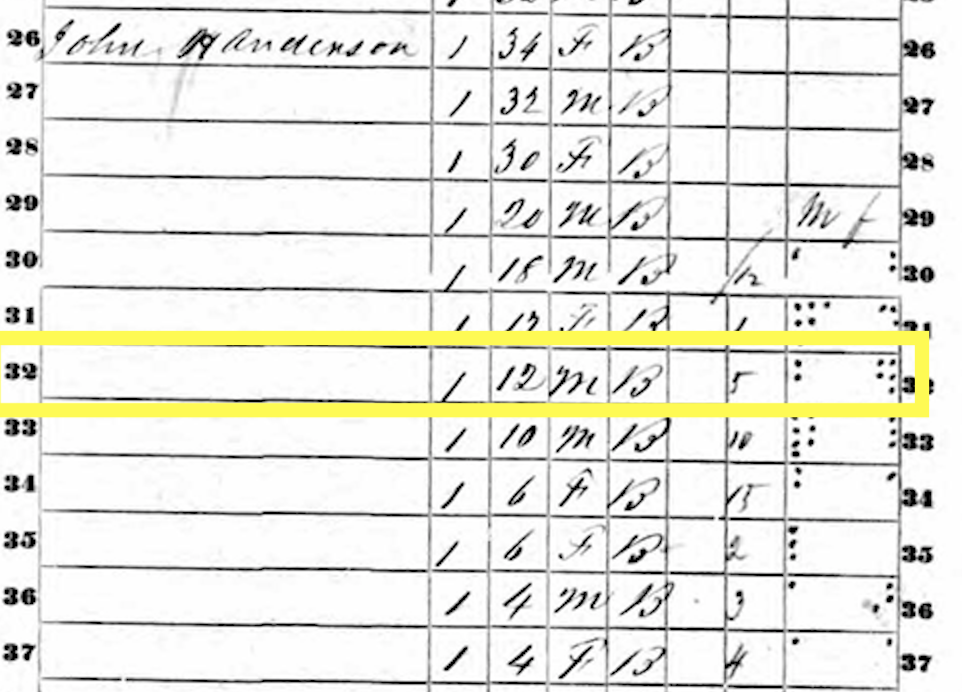 26 John H Anderson 1 34 F B 26
27 1 32 M B 27
28 1 30 F B 28
29 1 20 M B M f 29
30 1 18 M B /12 30
31 1 F B 1 31
32 1 12 M B 5 32
33 1 10 M B 10 33
34 1 6 F B 15 34
35 1 6 F B 2 35
36 1 4 M B 3 36
37 1 4 F B 4 37